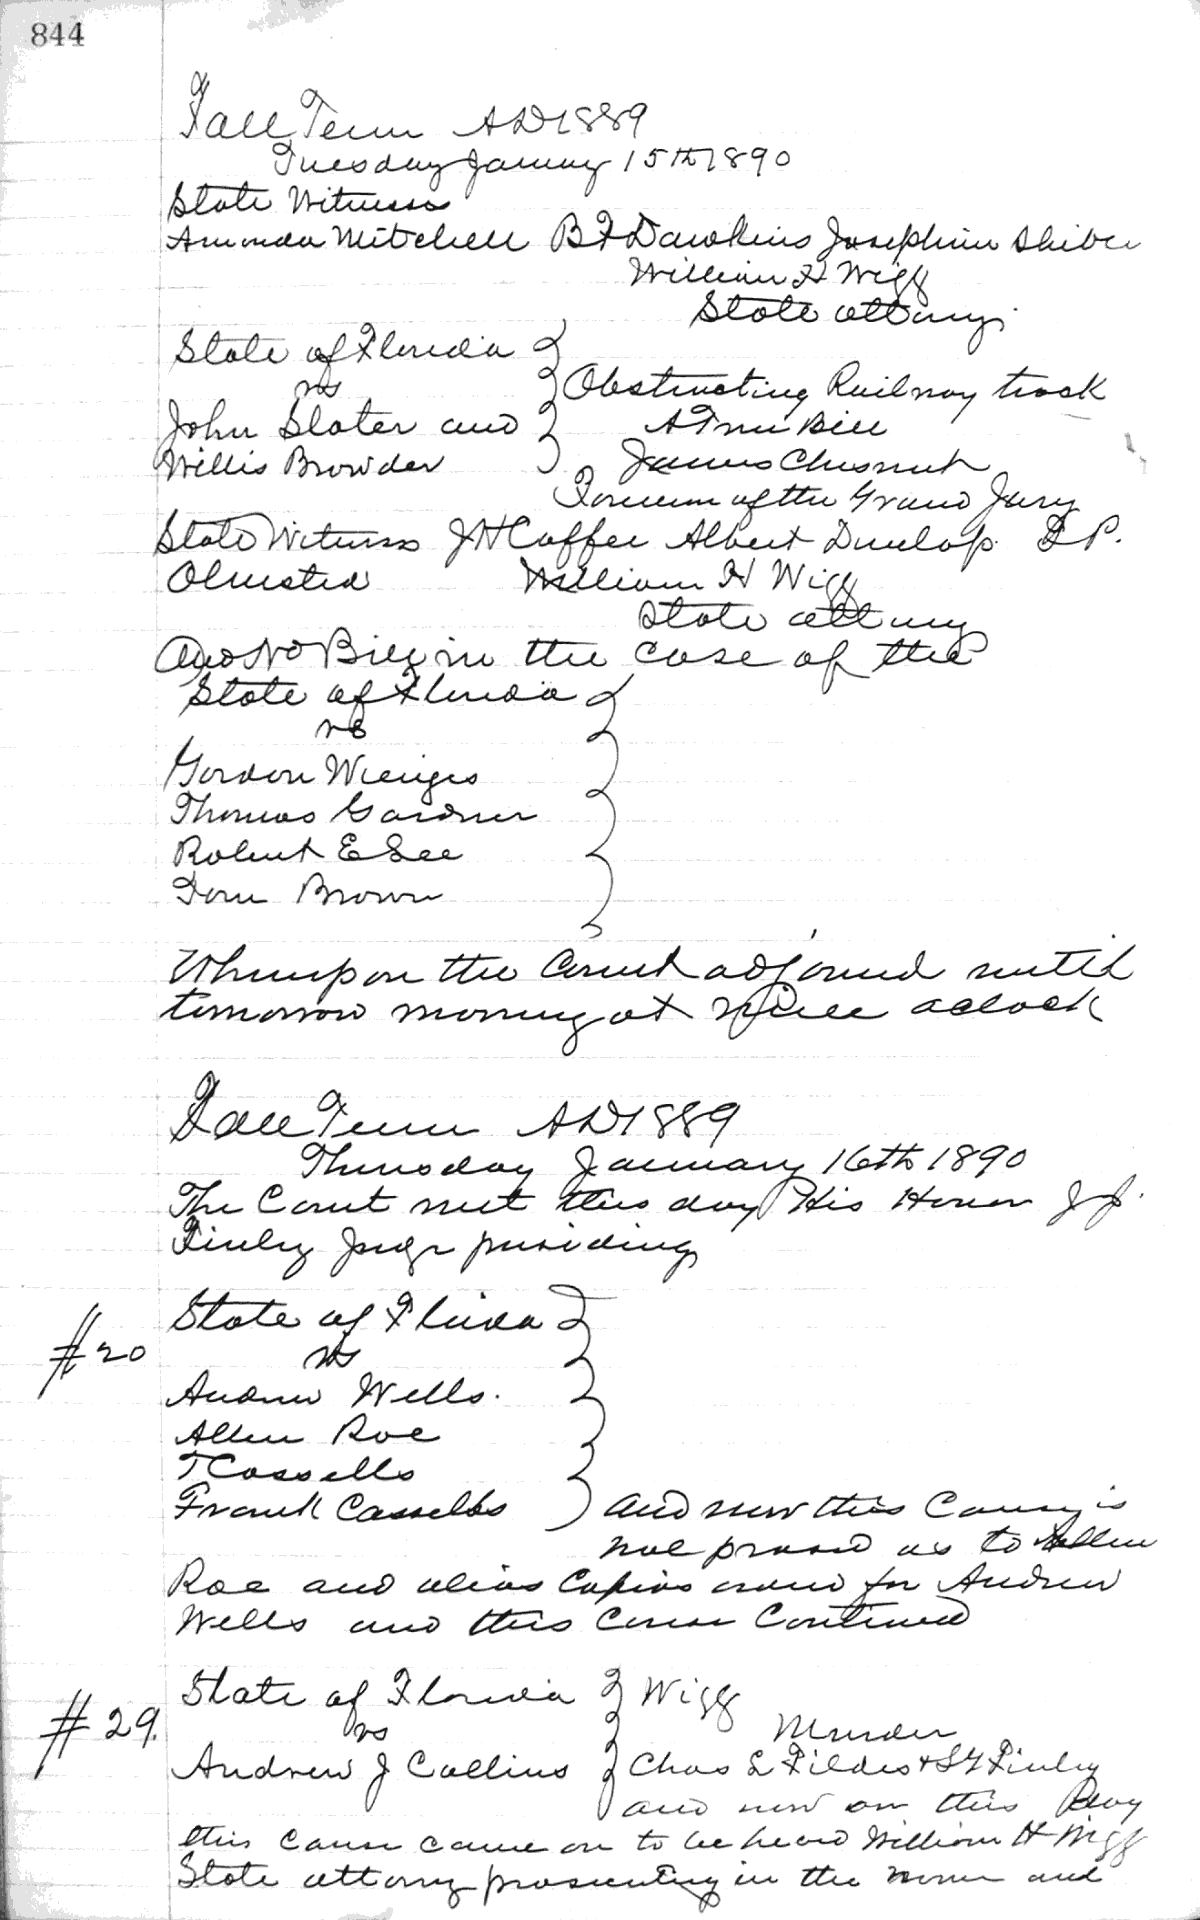 844
Fall Term AD 1889
Tuesday January 15th 1890
State Witness
Amanda Mitchell B F Dawkins Josephine
William H Wigg
State attorny
State of Florida
vs
Obstructing Railway track
John Slater and
A True Bill
Willis Browder
James Chesnut
Foreman of the Grand Jury
State Witness J H Caffee Albert Dunlap D P.
Olmsted William H Wigg
State attorny
And No Bill in the case of the
State of Florida
vs
Gordon
Thomas Gardner
Robert E Lee
Tom Brown
Whereupon the Court adjourned until
tomorrow morning at o'clock
Fall Term AD 1889
Thursday January 16th 1890
The Court met this day His Honor J J.
Finley Judge presiding
State of Florida
#20
vs
Andrew Wells.
Allen Roe
T Cassells
Frank Cassells and now this Cause is
nol prosed as to Allen
Roe and alias Capias for Andrew
Wells and this Cause Continued
State of Florida Wigg
#29.
vs
Murder
Andrew J Collins Chas L Fildes & S Y Finley
and now on this Day
this cause came on to be heard William H Wigg
State attorny prosecuting in the name and